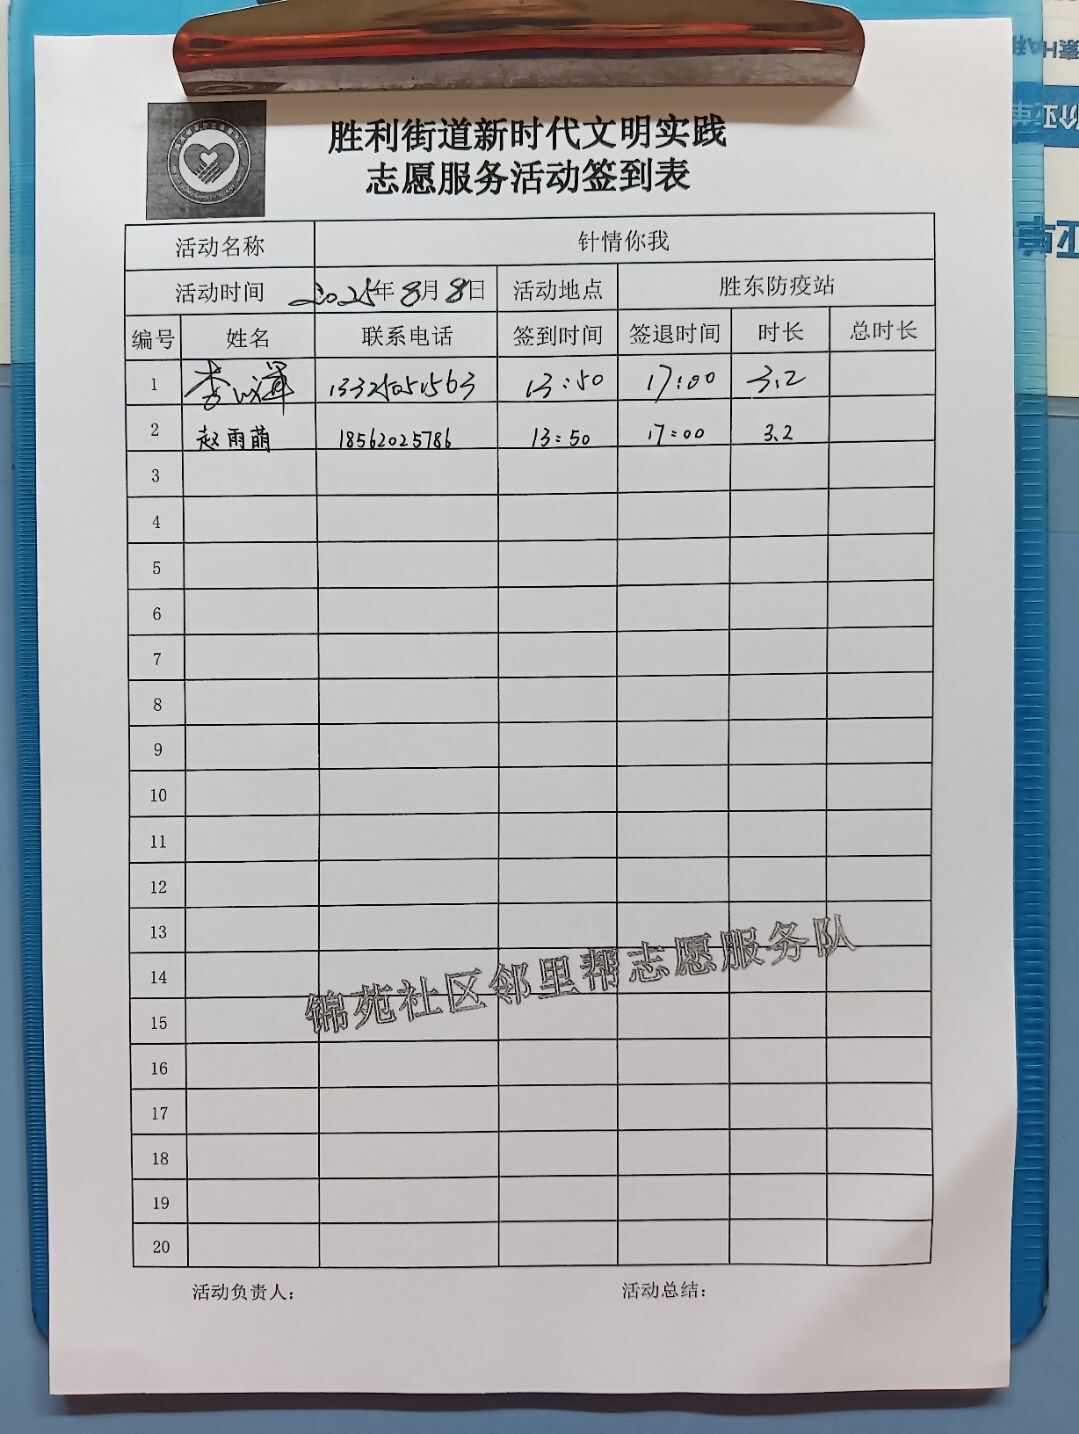 胜利街道新时代文明实践
志愿服务活动签到表
活动名称 针情你我
活动时间 2025年8月8日 活动地点 胜东防疫站
编号 姓名 联系电话 签到时间 签退时间 时长 总时长
1 李 13:50 17:00 3.2
2 赵雨萌 18562025786 13:50 17:00 3.2
3
4
5
6
7
8
9
10
11
12
13
14
锦苑社区邻里帮志愿服务队
15
16
17
18
19
20
活动负责人： 活动总结：